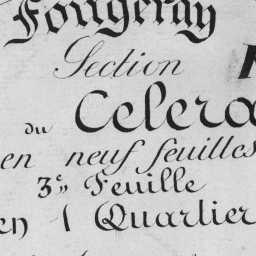 Fougeray
Section
du Celera
en neuf feuilles
3e. Feuille
en 1 Quartier